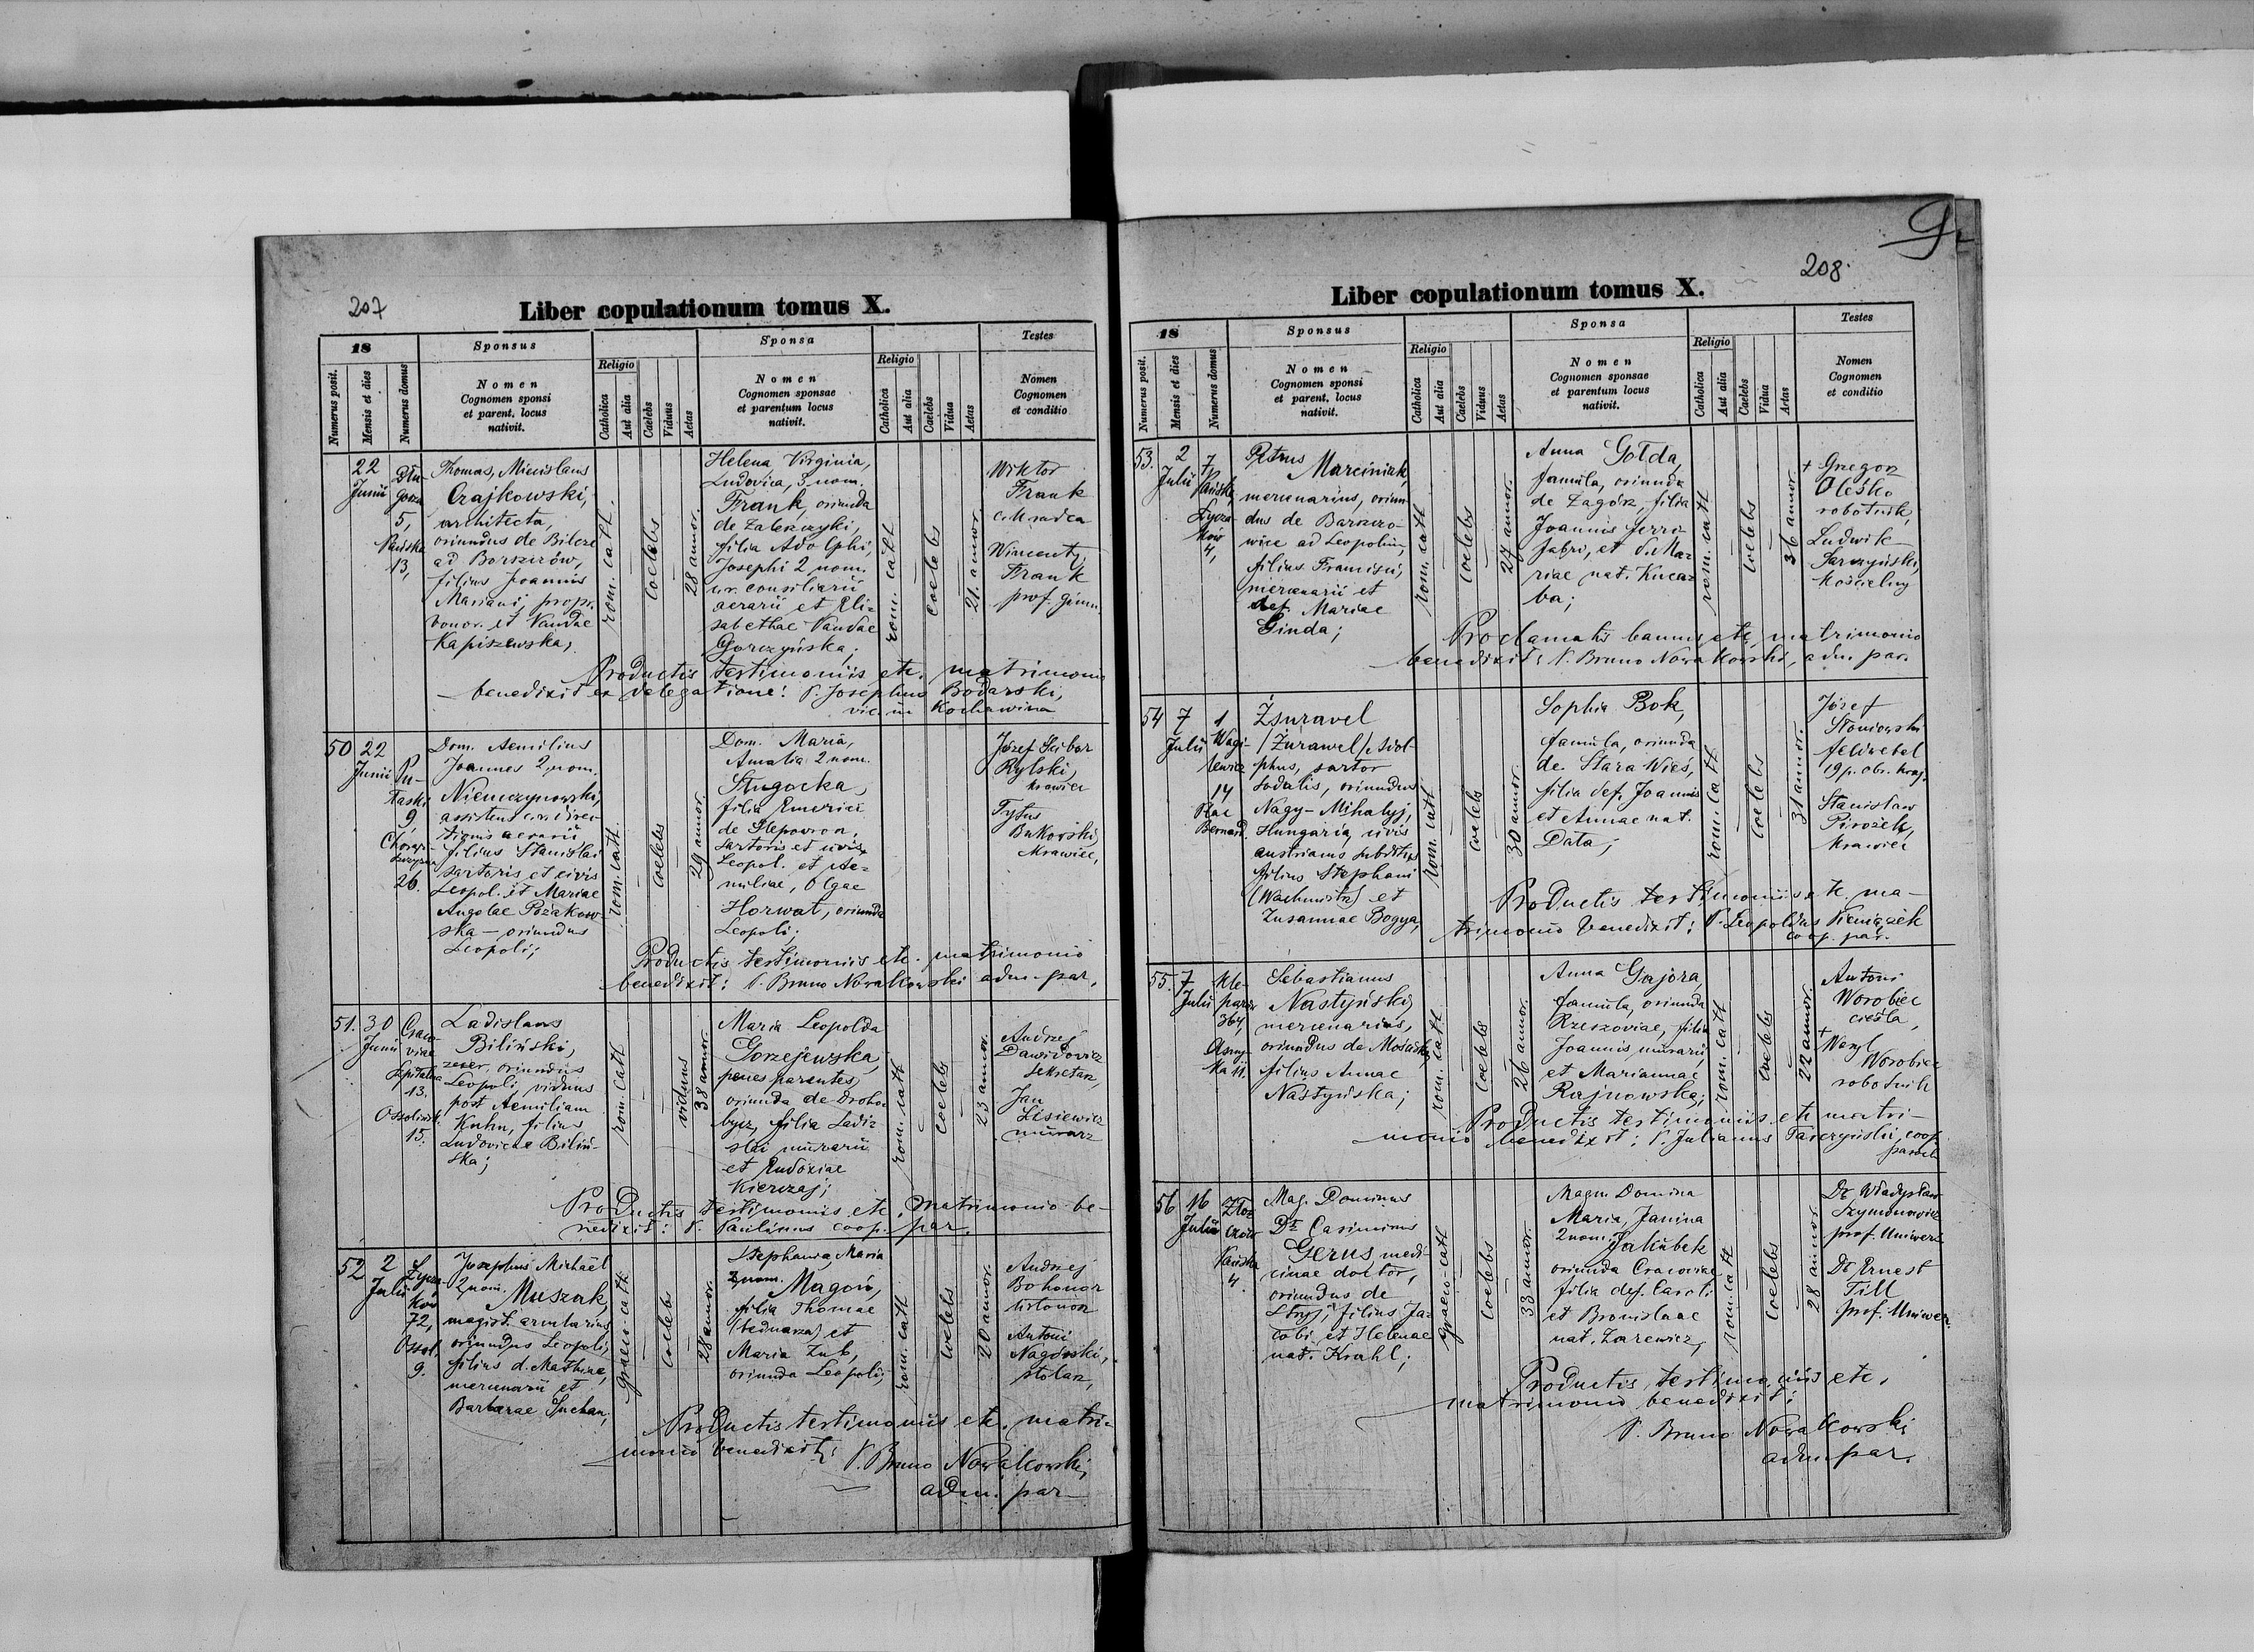 207
Liber copulationum tomus X.
18
Sponsus
Sponsa
Testes
Numerus posit.
Mensis et dies
Numerus domus
Nomen
Cognomen sponsi
et parent. locus
nativit.
Religio
Catholica
Aut alia
Caelebs
Viduus
Aetas
Nomen
Cognomen sponsae
et parentum locus
nativit.
Religio
Catholica
Aut alia
Caelebs
Vidua
Aetas
Nomen
Cognomen
et conditio
22
Junii
5,
Pańska
13,
Thomas, Micislaus
Czajkowski,
architecta,
oriundus de Bilcze
ad Borszczów,
filius Joannis
Mariani, propr.
bonor. et Vandae
Kapiszewska,
rom. cath.
coelebs
28 annor.
Helena, Virginia,
Ludovica, 3 nom.
Frank, oriunda
de Zaleszczyki,
filia Adolphi,
Josephi 2 nom.
consiliarii
aerarii et Eli-
sabethae Vandae
Gorczyńska;
rom. cath
coelebs
21. annor.
Wiktor
Frank
c. k. radca
Wincenty
Frank
prof. gimn.
Productis testimoniis etc. matrimonio
benedixit ex delegatione: P. Josephus Bodarski,
vic. in Kochawina
50
22
Junii
Pu-
łaski
9
Chorąż-
czyzna
26.
Dom. Aemilius
Joannes 2 nom.
Niemczynowski,
assistens c. r. direc-
tionis aerarii
filius Stanislai
sartoris et civis
Leopol. et Mariae
Angelae Pożakow-
ska – oriundus
Leopoli;
rom. cath.
coelebs
29 annor.
Dom. Maria,
Amalia 2 nom.
Sługocka,
filia Emerici
de Slepowron,
sartoris et civis
Leopol. et Ae-
miliae, Olgae
Horwat, oriunda
Leopoli;
Józef Scibor
Rylski,
krawiec
Tytus
Bukowski,
krawiec,
Productis testimoniis etc. matrimonio
benedixit: P. Bruno Nowakowski adm. par.
51.
30
Junii
Craco-
viae
Szpitalna
13.
Ossolińsk.
15.
Ladislaus
Biliński,
zecer, oriundus
Leopoli, viduus
post Aemiliam
Kuhn, filius
Ludovicae Biliń-
ska;
rom. cath
viduus
38 annor.
Maria Leopolda
Gorzejewska,
penes parentes,
oriunda de Droho-
bycz, filia Ladi-
slai murarii
et Eudoxiae
Kierczaj;
rom. cath
coelebs
23 annor.
Andrzej
Dawidowicz
sekretarz,
Jan
Lisiewicz
murarz
Productis testimoniis etc. matrimonio be-
nedixit: P. Paulinus coop. par.
52
2
Julii
Łycza-
kow
72,
Ossol.
9.
Josephus Michaël
2 nom. Muszak,
magist. armularius
oriundus Leopoli,
filius d. Mathiae,
mercenarii et
Barbarae Suchan;
graeco-cath
coelebs
28 annor.
Stephania, Maria
2 nom. Magoń,
filia Thomae
(bednarza) et
Maria Zub,
oriunda Leopoli;
rom. cath
coelebs
20 annor.
Andrzej
Bohonor
Antoni
Nagórski,
stolarz,
Productis testimoniis etc. matri-
monio benedixit: P. Bruno Nowakowski,
adm. par
9
208.
Liber copulationum tomus X.
18
Sponsus
Sponsa
Testes
Numerus posit.
Mensis et dies
Numerus domus
Nomen
Cognomen sponsi
et parent. locus
nativit.
Religio
Catholica
Aut alia
Caelebs
Viduus
Aetas
Nomen
Cognomen sponsae
et parentum locus
nativit.
Religio
Catholica
Aut alia
Caelebs
Vidua
Aetas
Nomen
Cognomen
et conditio
53.
2
Julii
7
Pańska
Łycza-
ków
4,
Petrus
Marciniak,
mercenarius, oriun-
dus de Barszczo-
wice ad Leopolim,
filius Francisci,
mercenarii et
def. Mariae
Ginda;
rom. cath
coelebs
27 annor.
Anna Gołda,
famula, oriunda
de Zagórz, filia
Joannis ferri-
fabri, et Ma-
riae nat. Kucaz-
ba;
rom. cath
coelebs
36 annor.
+ Gregorz
Oleśko
robotnik,
Ludwik
Sarczyński,
kościelny
Proclamatis bannis etc. matrimonio
benedixit: P. Bruno Nowakowski, adm. par.
54
7
Julii
1
Wagi-
lewicz
14
Plac
Bernard.
Żsuravel
/Żurawel/ Adol-
phus, sartor
sodalis, oriundus
Nagy-Mihalyj,
Hungaria, civis
austriacus subditus
filius Stephani
(Wachmistrz) et
Zusannae Bogya,
rom. cath
coelebs
30 annor.
Sophia Bok,
famula, oriunda
de Stara Wieś,
filia def. Joannis
et Annae nat.
Data;
rom. cath
coelebs
31 annor.
Józef
Słoniowski
feldwebel
19 p. obr. kraj.
Stanisław
Pirożek,
krawiec
Productis testimoniis etc. ma-
trimonio benedixit: P. Leopoldus Pieniążek
coop. par.
55.
7
Julii
Kle-
parów
364
Asny-
ka 11.
Sebastianus
Nastyński,
mercenarius,
oriundus de Mościska
filius Annae
Nastyńska;
rom. cath
coelebs
26 annor.
Anna Gajora,
famula, oriunda
Rzeszoviae, filia
Joannis murarii,
et Mariannae
Rajnowska;
rom. cath
coelebs
22 annor.
Antoni
Worobiec
cieśla,
+ Wasyl
Worobiec
robotnik
Productis testimoniis etc matri-
monio benedixit: P. Julianus Tarczyński, coop.
paroch
56
16
Julii
Zło-
czów
Pańska
4
Mag. Dominus
Dr. Casimirus
Gerus medi-
cinae doctor,
oriundus de
Stryj, filius Ja-
cobi et Helenae
nat. Krahl;
graeco-cath
coelebs
33 annor.
Magn. Domina
Maria, Janina
2 nom. Jakubek
oriunda Cracoviae
filia def. Caroli
et Bronislaae
nat. Zarewicz,
rom. cath
coelebs
28 annor.
Dr. Władysław
Szymonowicz
prof. Uniwers.
Dr. Ernest
Till
prof. Uniwer.
Productis testimoniis etc.
matrimonio benedixit:
P. Bruno Nowakowski
adm. par.